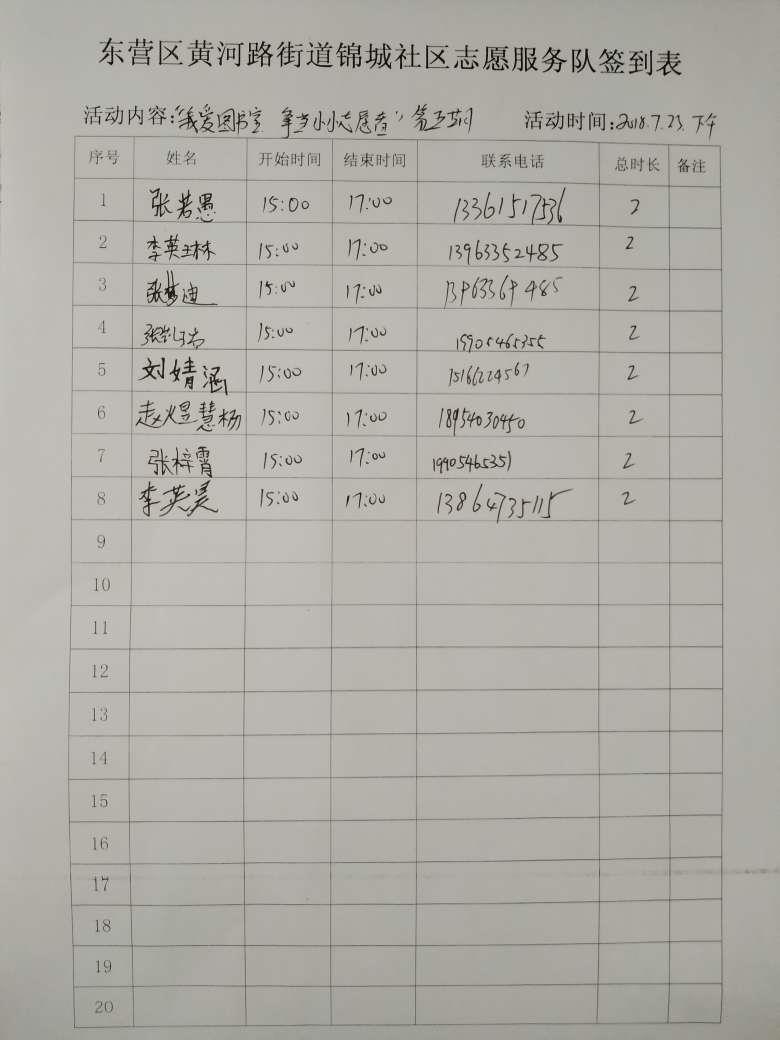 东营区黄河路街道锦城社区志愿服务队签到表
活动内容:“我爱图书室 争当小小志愿者”第五期 活动时间:2018.7.23.下午
序号 姓名 开始时间 结束时间 联系电话 总时长 备注
1 张若愚 15:00 17:00 13361517536 2
2 李英王林 15:00 17:00 13963352485 2
3 张梦迪 15:00 17:00 2
4 15:00 17:00 19905465355 2
5 刘婧涵 15:00 17:00 15166224567 2
6 赵煜慧杨 15:00 17:00 18954030450 2
7 张梓霄 15:00 17:00 19905465351 2
8 李英昊 15:00 17:00 13864735115 2
9
10
11
12
13
14
15
16
17
18
19
20